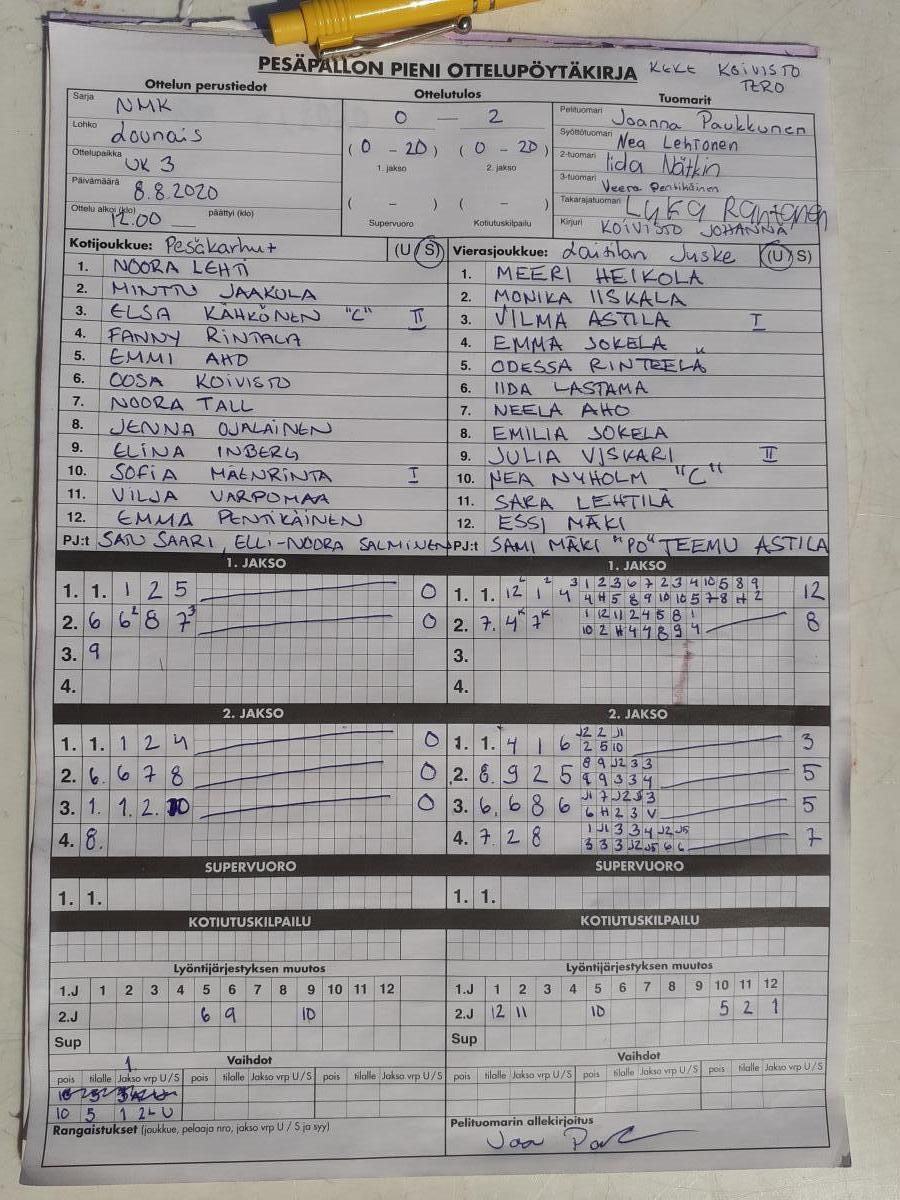 PESÄPALLON PIENI OTTELUPÖYTÄKIRJA KEKE KOIVISTO
TERO
Ottelun perustiedot Ottelutulos Tuomarit
Sarja NMK
Lohko Lounais
Ottelupaikka UK 3
Päivämäärä 8.8.2020
Ottelu alkoi (klo) 12.00 päättyi (klo)
0 — 2
( 0 - 20 ) ( 0 - 20 )
1. jakso 2. jakso
( - ) ( - )
Supervuoro Kotiutuskilpailu
Pelituomari Joanna Paukkunen
Syöttötuomari Nea Lehtonen
2-tuomari Iida Nätkin
3-tuomari Veera Pentikäinen
Takarajatuomari Lyka Rantanen
Kirjuri KOIVISTO JOHANNA
Kotijoukkue: Pesäkarhut (U S)
1. NOORA LEHTI
2. MINTTU JAAKOLA
3. ELSA KÄHKÖNEN "C" II
4. FANNY RINTALA
5. EMMI AHO
6. OOSA KOIVISTO
7. NOORA TALL
8. JENNA OJALAINEN
9. ELINA INBERG
10. SOFIA MÄENRINTA I
11. VILJA VARPOMAA
12. EMMA PENTIKÄINEN
PJ:t SATU SAARI, ELLI-NOORA SALMINEN
Vierasjoukkue: Laitilan Jyske (U S)
1. MEERI HEIKOLA
2. MONIKA IISKALA
3. VILMA ASTILA I
4. EMMA JOKELA
5. ODESSA RINTEELA
6. IIDA LASTAMA
7. NEELA AHO
8. EMILIA JOKELA
9. JULIA VISKARI II
10. NEA NYHOLM "C"
11. SARA LEHTILÄ
12. ESSI MÄKI
PJ:t SAMI MÄKI "PO" TEEMU ASTILA
1. JAKSO
1. 1. 1 2 5 0
2. 6 6² 8 7³ 0
3. 9
4.
1. JAKSO
1. 1. 12 1² 4³ 1 2 3 6 7 2 3 4 10 5 8 9 12
4 H 5 8 9 10 10 5 7 8 H 2
2. 7. 4ᴷ 7ᴷ 1 12 11 2 4 5 8 1 8
10 2 H 4 4 8 9 4
3.
4.
2. JAKSO
1. 1. 1 2 4 0
2. 6. 6 7 8 0
3. 1. 1. 2. 10 0
4. 8.
2. JAKSO
1. 1. 4 1 6 J2 2 J1 3
2 5 10
2. 8. 9 2 5 8 9 J2 3 3 5
9 9 3 3 4
3. 6. 6 8 6 J1 7 J2 J3 3 5
6 H 2 3 V
4. 7. 2 8 1 J1 3 3 4 J2 J5 7
3 3 3 J2 J5 6 6
SUPERVUORO
1. 1.
SUPERVUORO
1. 1.
KOTIUTUSKILPAILU
KOTIUTUSKILPAILU
Lyöntijärjestyksen muutos
1.J 1 2 3 4 5 6 7 8 9 10 11 12
2.J 6 9 10
Sup
Lyöntijärjestyksen muutos
1.J 1 2 3 4 5 6 7 8 9 10 11 12
2.J 12 11 10 5 2 1
Sup
1 Vaihdot
pois tilalle Jakso vrp U/S pois tilalle Jakso vrp U/S pois tilalle Jakso vrp U/S
10 5 1 2- U
Vaihdot
pois tilalle Jakso vrp U/S pois tilalle Jakso vrp U/S pois tilalle Jakso vrp U/S
Rangaistukset (joukkue, pelaaja nro, jakso vrp U / S ja syy)
Pelituomarin allekirjoitus